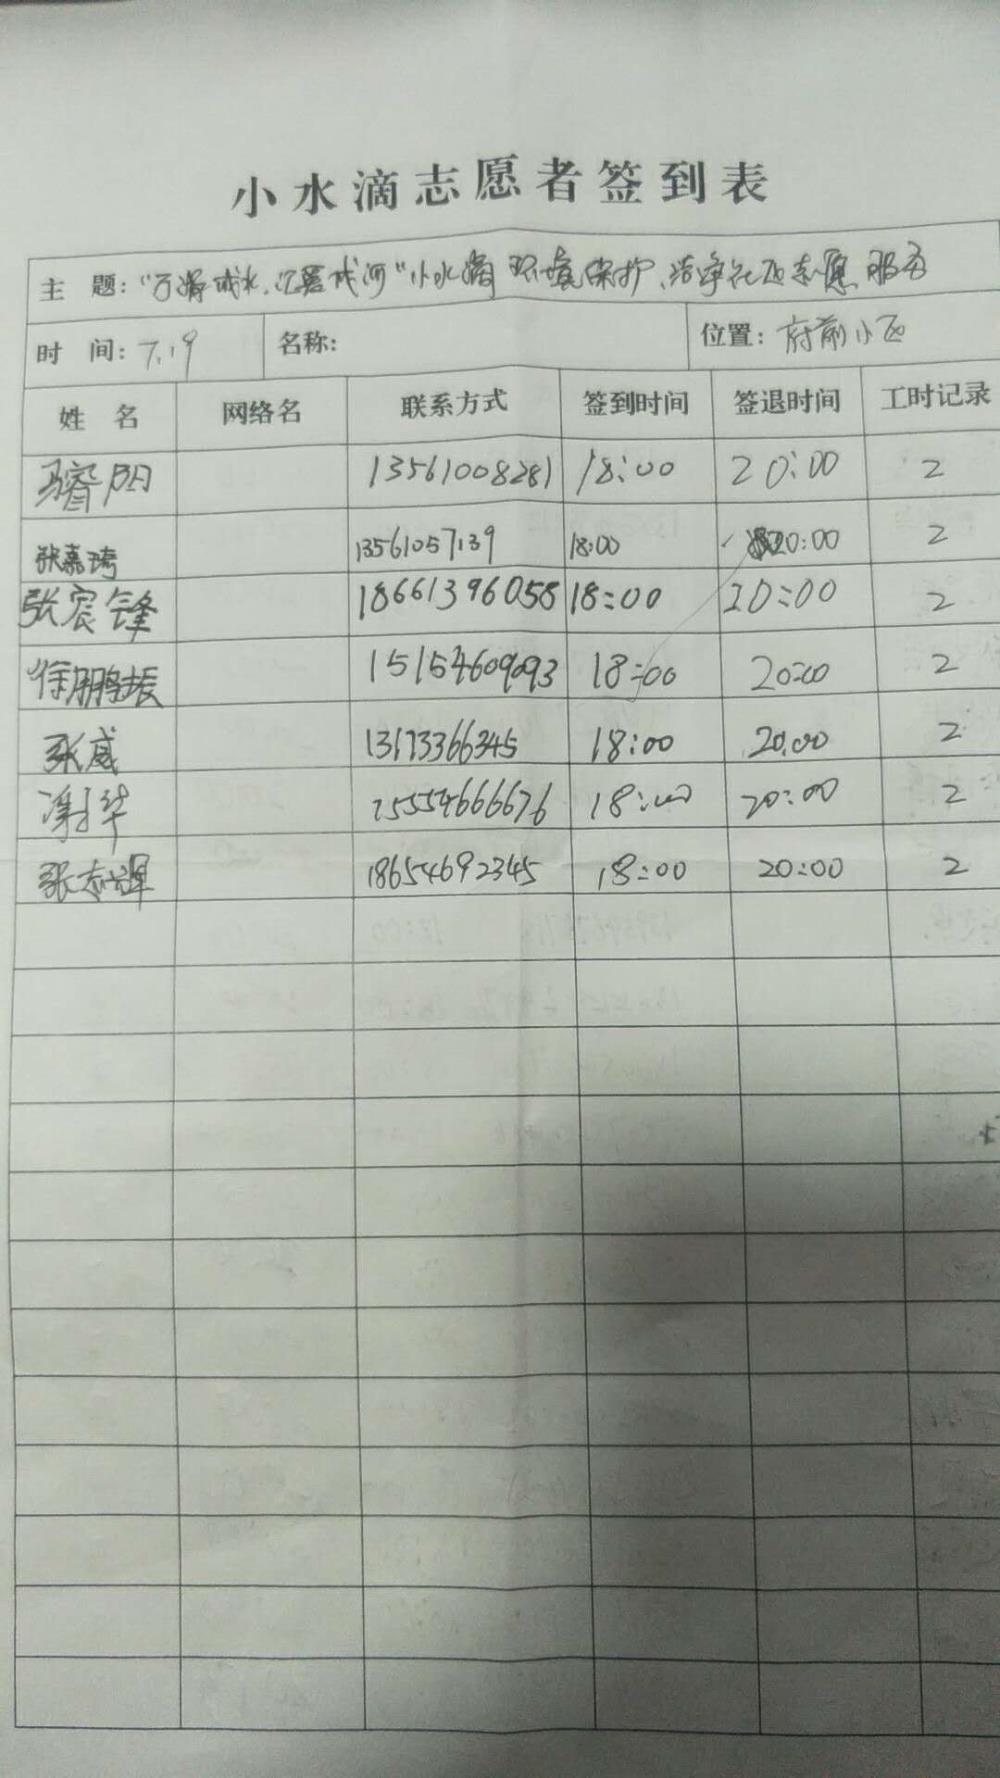 小水滴志愿者签到表
主 题：“万滴成水，汇聚成河”小水滴环境保护、洁净社区志愿服务
时 间：7.19 名称： 位置：府前小区
姓 名 网络名 联系方式 签到时间 签退时间 工时记录
马睿阳 13561008281 18:00 20:00 2
张嘉琦 13561057139 18:00 20:00 2
张宸锋 18661396058 18:00 20:00 2
徐鹏振 15154609093 18:00 20:00 2
张威 13173366345 18:00 20:00 2
15554666676 18:00 20:00 2
张志辉 18654692345 18:00 20:00 2